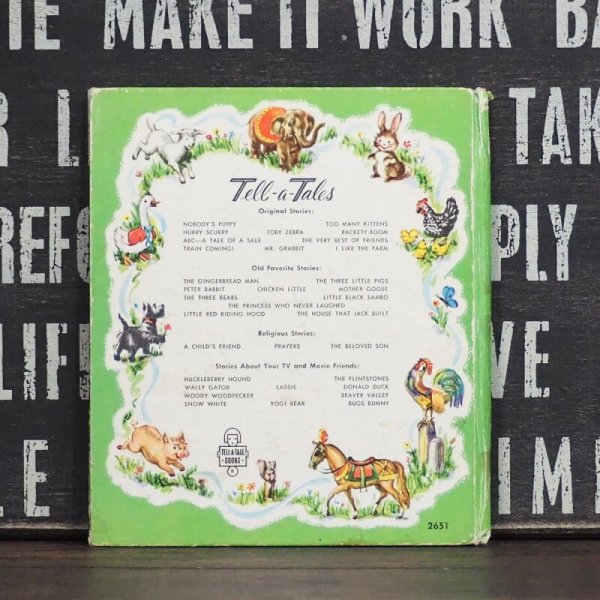 TE MAKE IT WORK BA
R L
TAK
REFO
PLY
LIF
VE
LE
IM
Tell-a-Tales
Original Stories:
NOBODY'S PUPPY TOO MANY KITTENS
HURRY SCURRY TOBY ZEBRA RACKETY-BOOM
ABC—A TALE OF A SALE THE VERY BEST OF FRIENDS
TRAIN COMING! MR. GRABBIT I LIKE THE FARM
Old Favorite Stories:
THE GINGERBREAD MAN THE THREE LITTLE PIGS
PETER RABBIT CHICKEN LITTLE MOTHER GOOSE
THE THREE BEARS LITTLE BLACK SAMBO
THE PRINCESS WHO NEVER LAUGHED
LITTLE RED RIDING HOOD THE HOUSE THAT JACK BUILT
Religious Stories:
A CHILD'S FRIEND PRAYERS THE BELOVED SON
Stories About Your TV and Movie Friends:
HUCKLEBERRY HOUND THE FLINTSTONES
WALLY GATOR LASSIE DONALD DUCK
WOODY WOODPECKER BEAVER VALLEY
SNOW WHITE YOGI BEAR BUGS BUNNY
TELL-A-TALE
BOOKS
®
2651